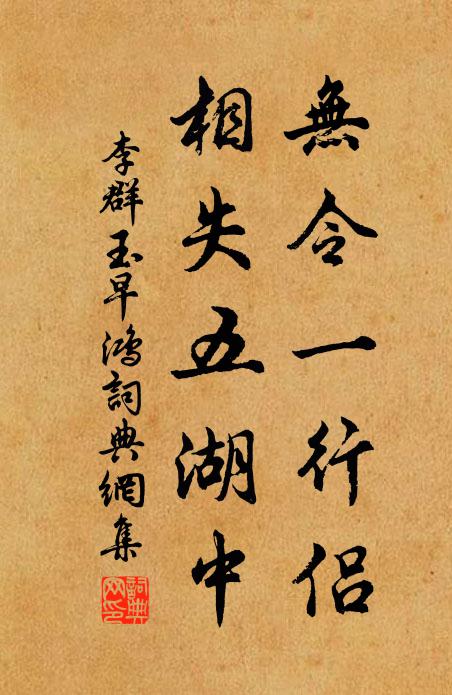 無令一行侶
相失五湖中
李群玉早鴻詞典網集
詞典網印